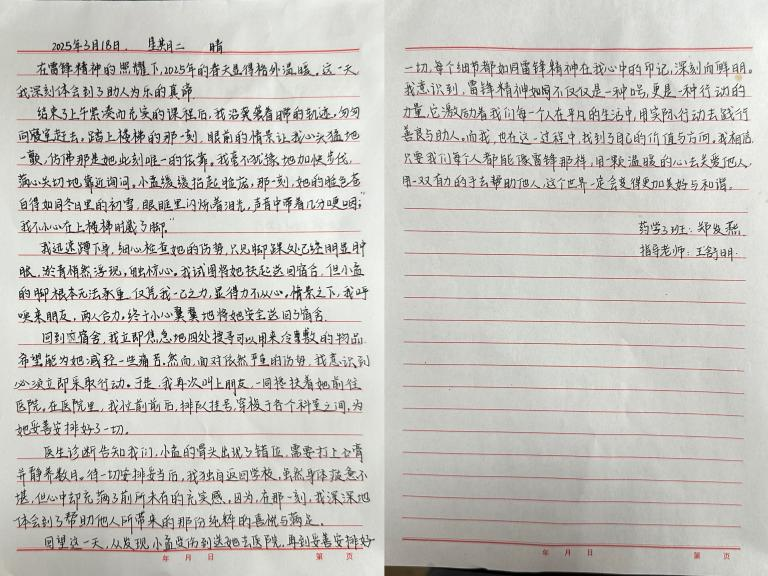 2025年3月18日. 星期二 晴
在雷锋精神的照耀下,2025年的春天显得格外温暖。这一天
我深刻体会到了助人为乐的真谛
结束了上午紧凑而充实的课程后,我沿袭着日常的轨迹,匆匆
向寝室赶去。踏上楼梯的那一刻,眼前的情景让我心头猛地
一颤,仿佛那是她此刻唯一的依靠。我毫不犹豫地加快步伐,
满心关切地靠近询问。小孟缓缓抬起脸庞,那一刻,她的脸色苍
白得如同冬日里的初雪,眼眶里闪烁着泪光,声音中带着几分哽咽:“
我不小心在上楼梯时崴了脚。”
我迅速蹲下身,细心检查她的伤势,只见脚踝处已经明显肿
胀,淤青悄然浮现,触目惊心。我试图将她扶起送回宿舍,但小孟
的脚根本无法承重,仅凭我一己之力,显得力不从心。情急之下,我呼
唤来朋友,两人合力,终于小心翼翼地将她安全送回了宿舍.
回到宿舍,我立即焦急地四处搜寻可以用来冷敷的物品
希望能为她减轻一些痛苦。然而,面对依然严重的伤势,我意识到
必须立即采取行动。于是,我再次叫上朋友,一同搀扶着她前往
医院。在医院里,我忙前忙后,排队挂号,穿梭于各个科室之间,为
她妥善安排好了一切。
医生诊断告知我们,小孟的骨头出现了错位,需要打上石膏
并静养数月。待一切安排妥当后,我独自返回学校,虽然身体疲惫不
堪,但心中却充满了前所未有的充实感。因为,在那一刻,我深深地
体会到了帮助他人所带来的那份纯粹的喜悦与满足。
回望这一天,从发现小孟受伤到送她去医院,再到妥善安排好
年 月 日 第 页
一切,每个细节都如同雷锋精神在我心中的印记,深刻而鲜明。
我意识到,雷锋精神如同不仅仅是一种口号,更是一种行动的
力量,它激励着我们每个人在平凡的生活中,用实际行动去践行
善良与助人。而我,也在这一过程中,找到了自己的价值与方向。我相信
只要我们每个人都能像雷锋那样,用一颗温暖的心去关爱他人,
用一双有力的手去帮助他人,这个世界一定会变得更加美好与和谐。
药学3班:郑发燕
指导老师:王舒明
年 月 日 第 页